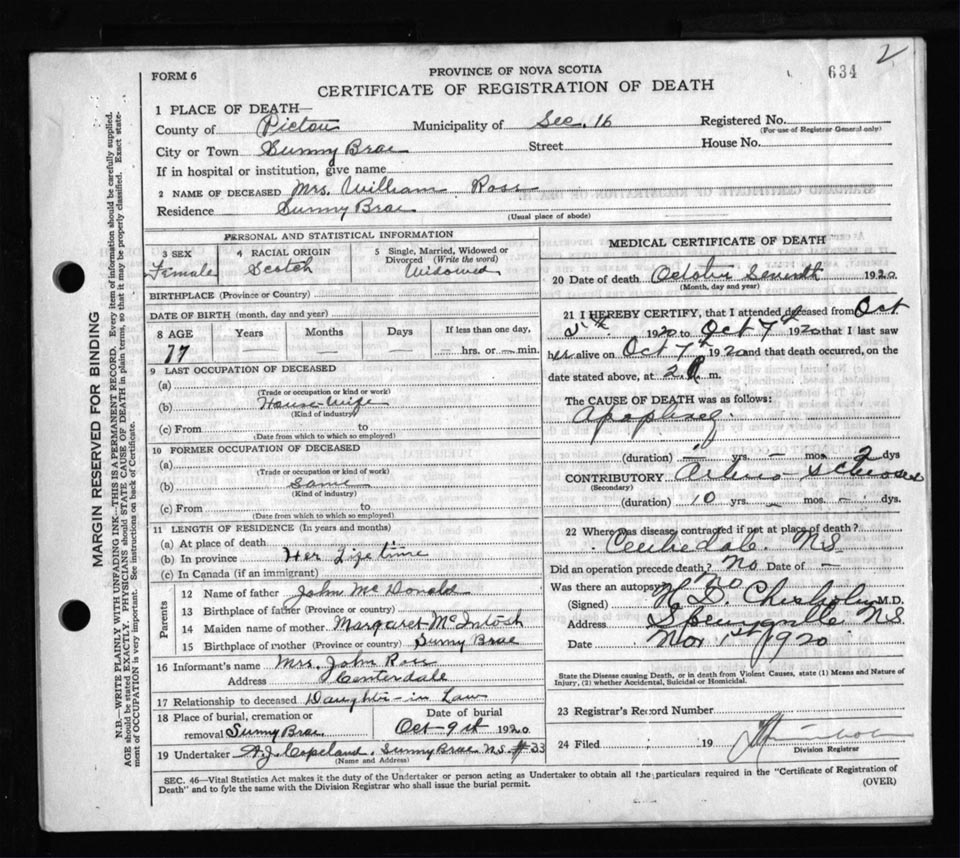 2
634
FORM 6
PROVINCE OF NOVA SCOTIA
CERTIFICATE OF REGISTRATION OF DEATH
1 PLACE OF DEATH—
County of Pictou Municipality of Sec. 16 Registered No.
(For use of Registrar General only)
City or Town Sunny Brae Street House No.
If in hospital or institution, give name
2 NAME OF DECEASED Mrs. William Ross
Residence Sunny Brae
(Usual place of abode)
PERSONAL AND STATISTICAL INFORMATION
3 SEX Female
4 RACIAL ORIGIN Scotch
5 Single, Married, Widowed or Divorced (Write the word) Widowed
BIRTHPLACE (Province or Country)
DATE OF BIRTH (month, day and year)
8 AGE Years Months Days If less than one day,
77 — — — hrs. or — min.
9 LAST OCCUPATION OF DECEASED
(a)
(Trade or occupation or kind of work)
(b) House wife
(Kind of industry)
(c) From to
(Date from which to which so employed)
10 FORMER OCCUPATION OF DECEASED
(a)
(Trade or occupation or kind of work)
(b) Same
(Kind of industry)
(c) From to
(Date from which to which so employed)
11 LENGTH OF RESIDENCE (In years and months)
(a) At place of death
(b) In province Her Life time
(c) In Canada (if an immigrant)
Parents
12 Name of father John McDonald
13 Birthplace of father (Province or country)
14 Maiden name of mother Margaret McIntosh
15 Birthplace of mother (Province or country) Sunny Brae
16 Informant's name Mrs. John Ross
Address Centerdale
17 Relationship to deceased Daughter-in Law
18 Place of burial, cremation or removal Sunny Brae
Date of burial Oct-9th 1920
19 Undertaker A.J. Copeland. Sunny Brae N.S. #33
(Name and Address)
MEDICAL CERTIFICATE OF DEATH
20 Date of death October Seventh 1920
(Month, day and year)
21 I HEREBY CERTIFY, that I attended deceased from Oct
5th 1920 to Oct 7th 1920 that I last saw
her alive on Oct 7th 1920 and that death occurred, on the
date stated above, at 2 P. m.
The CAUSE OF DEATH was as follows:
Apoplexy
(duration) — yrs. — mos. 2 dys
CONTRIBUTORY
(Secondary)
(duration) 10 yrs. — mos. — dys.
22 Where was disease contracted if not at place of death?
N.S.
Did an operation precede death? No Date of —
Was there an autopsy? No
(Signed) H. D. Chisholm M.D.
Address Springville N.S.
Date Nov 1st 1920
State the Disease causing Death, or in death from Violent Causes, state (1) Means and Nature of Injury, (2) whether Accidental, Suicidal or Homicidal.
23 Registrar's Record Number
24 Filed 19
Division Registrar
SEC. 46—Vital Statistics Act makes it the duty of the Undertaker or person acting as Undertaker to obtain all the particulars required in the "Certificate of Registration of
Death" and to fyle the same with the Division Registrar who shall issue the burial permit.
(OVER)
MARGIN RESERVED FOR BINDING
N.B.—WRITE PLAINLY WITH UNFADING INK—THIS IS A PERMANENT RECORD. Every item of information should be carefully supplied.
AGE should be stated EXACTLY. PHYSICIANS should STATE CAUSE OF DEATH in plain terms, so that it may be properly classified. Exact state-
ment of OCCUPATION is very important. See instructions on back of Certificate.